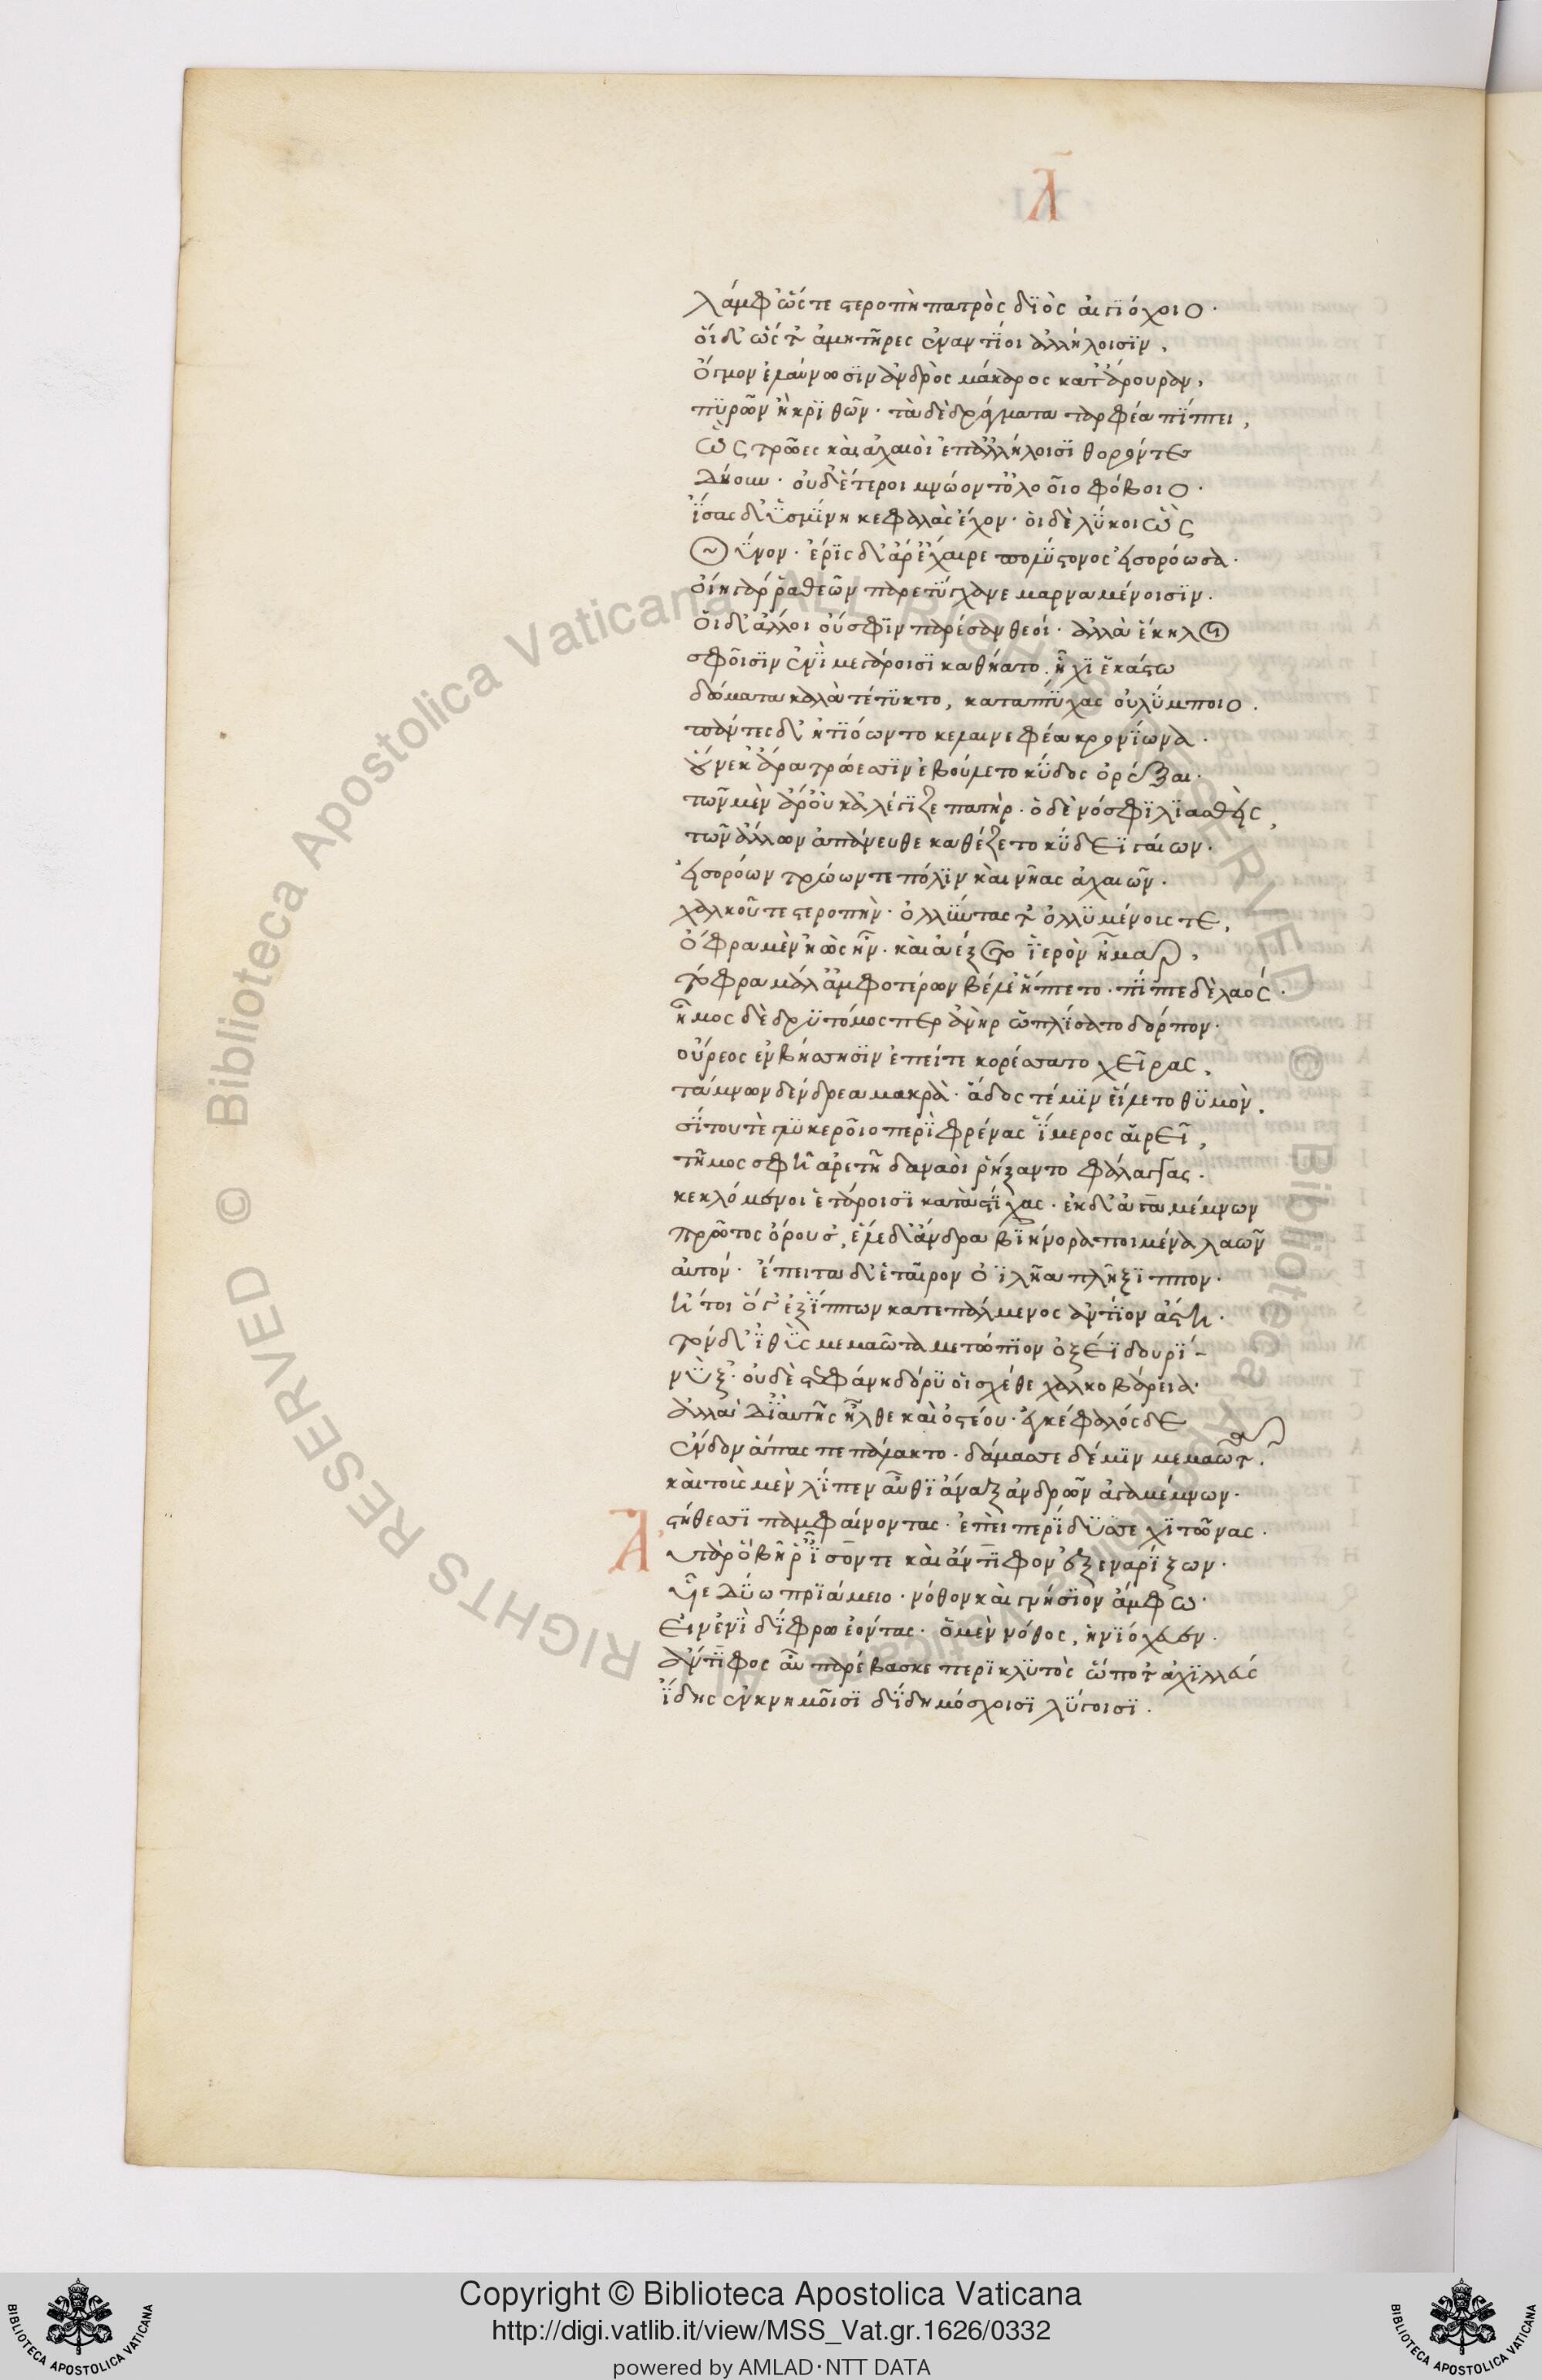 λ̄
λάμφ' ὥς τε στεροπὴ πατρὸς διὸς αἰγιόχοιο·
οἵ δ' ὥς τ' ἀμητῆρες ἐναντίοι ἀλλήλοισϊν,
ὄγμον ἐλαύνωσϊν ἀνδρὸς μάκαρος κατ' ἄρουραν,
πϋρῶν ἢ κρϊθῶν· τὰ δὲ δράγματα ταρφέα πίπτει,
ὣς τρῶες καὶ ἀχαιοὶ ἐπ' ἀλλήλοισϊ θορόντες
δήουν· οὐδ' ἕτεροι μνώοντ' ὀλοοῖο φόβοιο·
ἴσας δ' ὑσμίνη κεφαλὰς ἔχον· οἱ δὲ λύκοι ὣς
θῦνον· ἔρϊς δ' ἄρ' ἔχαιρε πολύστονος εἰσορόωσα·
οἴη γάρ ῥα θεῶν παρετύγχανε μαρναμένοισϊν·
οἱ δ' ἄλλοι οὔ σφϊν πάρεσαν θεοί· ἀλλὰ ἕκηλοι
σφοῖσϊν ἐνὶ μεγάροισϊ καθήατο· ἧχϊ ἑκάστω
δώματα καλὰ τέτυκτο, κατα πτύχας οὐλύμποιο.
πάντες δ' ἠτιόωντο κελαινεφέα κρονίωνα·
οὕνεκ' ἄρα τρώεσσϊν ἐβούλετο κῦδος ὀρέξαι·
τῶν μὲν ἄρ' οὐκ ἀλέγιζε πατὴρ· ὁ δὲ νόσφϊ λϊασθεὶς,
τῶν ἄλλων ἀπάνευθε καθέζετο κύδεϊ γαίων·
εἰσορόων τρώων τε πόλϊν καὶ νῆας ἀχαιῶν·
χαλκοῦ τε στεροπὴν· ὀλλύντας τ' ὀλλϋμένους τε,
ὄφρα μὲν ἠὼς ἦν· καὶ ἀέξετο ἱερὸν ἦμαρ,
τόφρα μάλ' ἀμφοτέρων βέλε' ἥπτετο· πίπτε δὲ λαός·
ἦμος δὲ δρϋτόμος περ ἀνὴρ ὡπλίσατο δόρπον·
οὔρεος ἐν βήσσησϊν ἐπεί τε κορέσσατο χεῖρας,
τάμνων δένδρεα μακρὰ· ἅδος τέ μϊν εἵλετο θϋμὸν,
σίτου τὲ γλυκεροῖο περὶ φρένας ἵμερος αἱρεῖ,
τῆμος σφῆ ἀρετῆ δαναοὶ ῥήξαντο φάλαγγας·
κεκλόμενοι ἑτάροισϊ κατὰ στίχας· ἐκ δ' ἀγαμέμνων
πρῶτος ὄρουσ', ἕλε δ' ἄνδρα βϊήνορα ποιμένα λαῶν
αὐτόν· ἔπειτα δ' ἑταῖρον ὀϊλῆα πλήξιππον·
ἤτοι ὅγ' ἐξ ἵππων κατεπάλμενος ἀντίον ἔστη·
τὸν δ' ἰθὺς μεμαῶτα μετώπϊον ὀξέϊ δουρί
νύξ'· οὐδὲ στεφάνη δόρϋ οἱ σχέθε χαλκοβάρεια·
ἀλλὰ δι' αὐτῆς ἦλθε καὶ ὀστέου· ἐγκέφαλός δε
ἔνδον ἅπας πεπάλακτο· δάμασσε δέ μϊν μεμαῶτα.
καὶ τοὺς μὲν λίπεν αὖθϊ ἄναξ ἀνδρῶν ἀγαμέμνων·
στήθεσσϊ παμφαίνοντας· ἐπεὶ περίδϋσε χϊτῶνας·
Αὐτὰρ ὁ βῆ ῥ' ἶσόν τε καὶ ἄντϊφον ἐξεναρίξων·
υἷε δύω πρϊάμοιο· νόθον καὶ γνήσιον ἄμφω·
εἰν ἑνὶ δίφρω ἐόντας· ὃ μὲν νόθος, ἡνϊόχευεν·
ἄντϊφος αὖ παρέβασκε περϊκλϋτὸς ὥ ποτ' ἀχϊλλεύς
ἴδης ἐν κνημοῖσϊ δίδη μόσχοισϊ λύγοισϊ.
Copyright © Biblioteca Apostolica Vaticana
http://digi.vatlib.it/view/MSS_Vat.gr.1626/0332
powered by AMLAD·NTT DATA